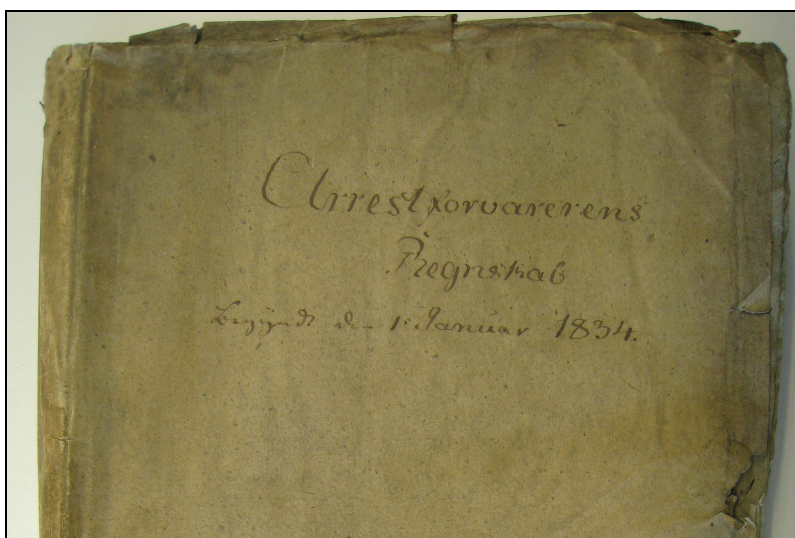 Arrestforvarerens
Regnskab
Begyndt den 1ᵉ Januar 1834.